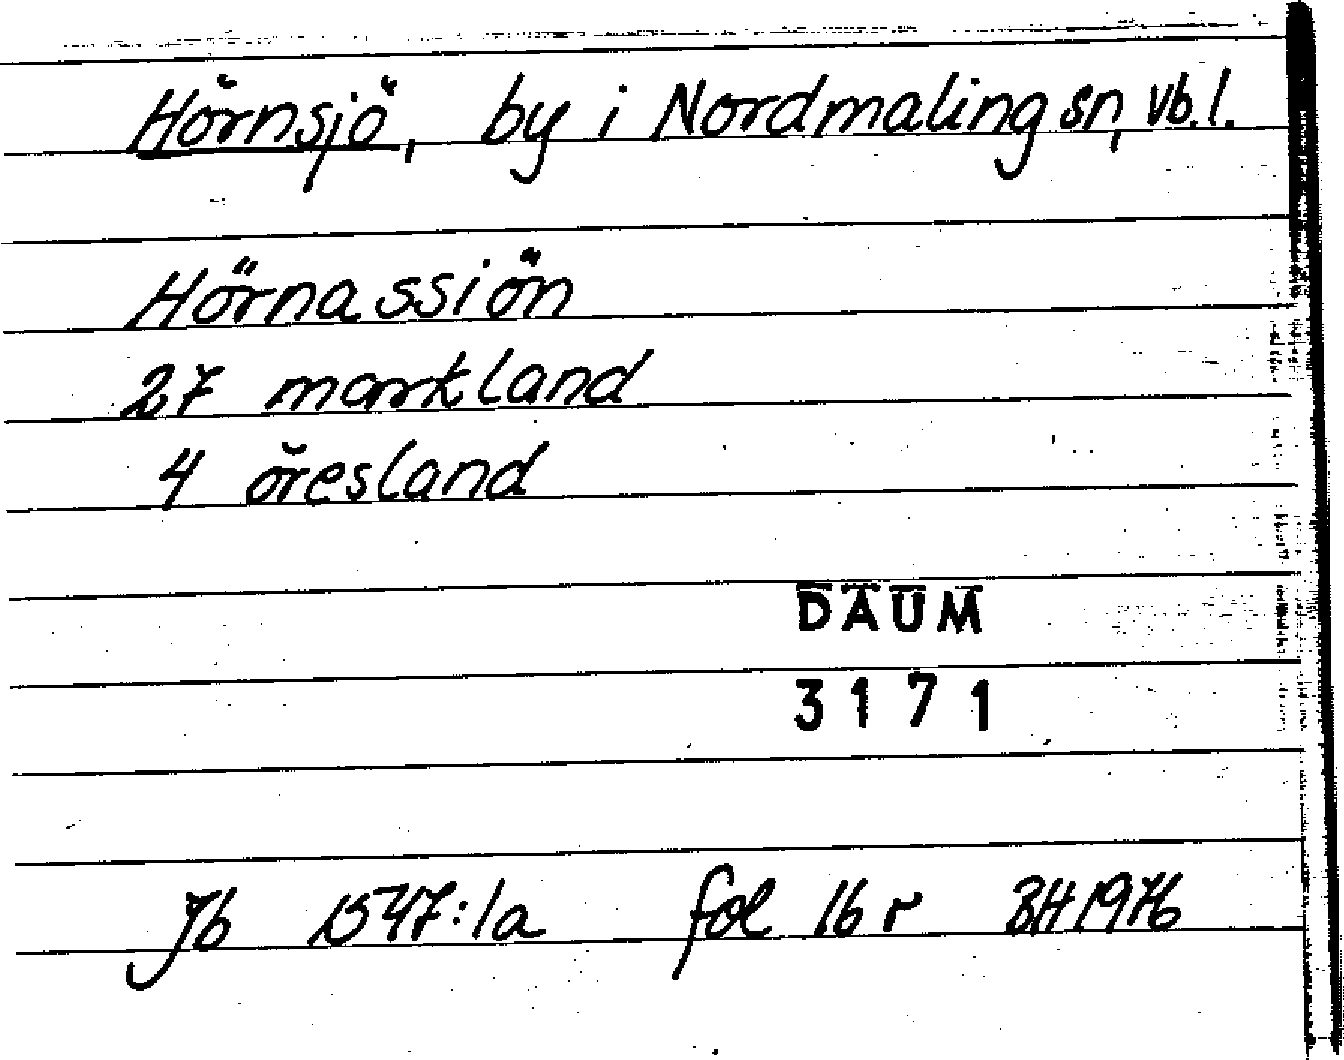 Hörnsjö, by i Nordmaling sn, Vb.l.
Hörnassiön
27 markland
4 öresland
DAUM
3171
Jb 1547:1a fol 16 r BH 1976